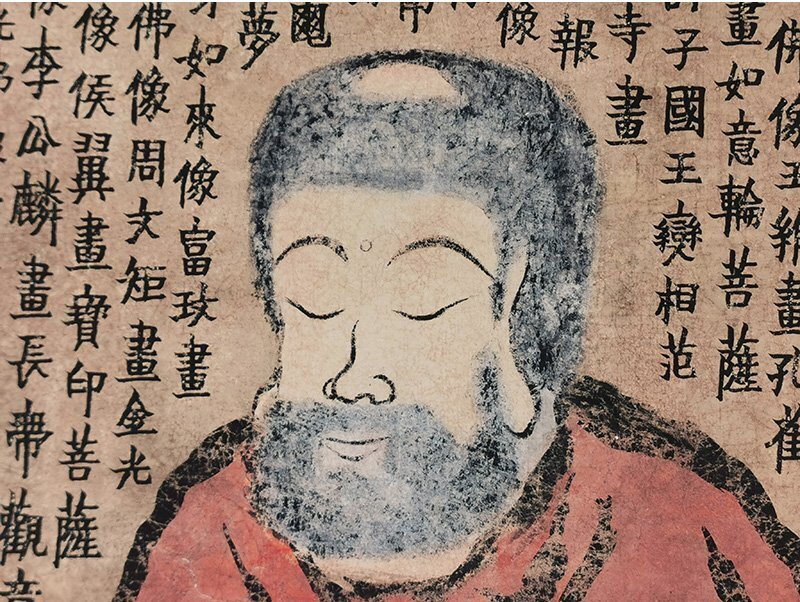 佛像王維畫孔雀
畫如意輪菩薩
子國王變相范
寺畫
報
像
夢
如來像富玫畫
佛像周文矩畫金光
像侯翼畫寶印菩薩
像李公麟畫長帶觀音